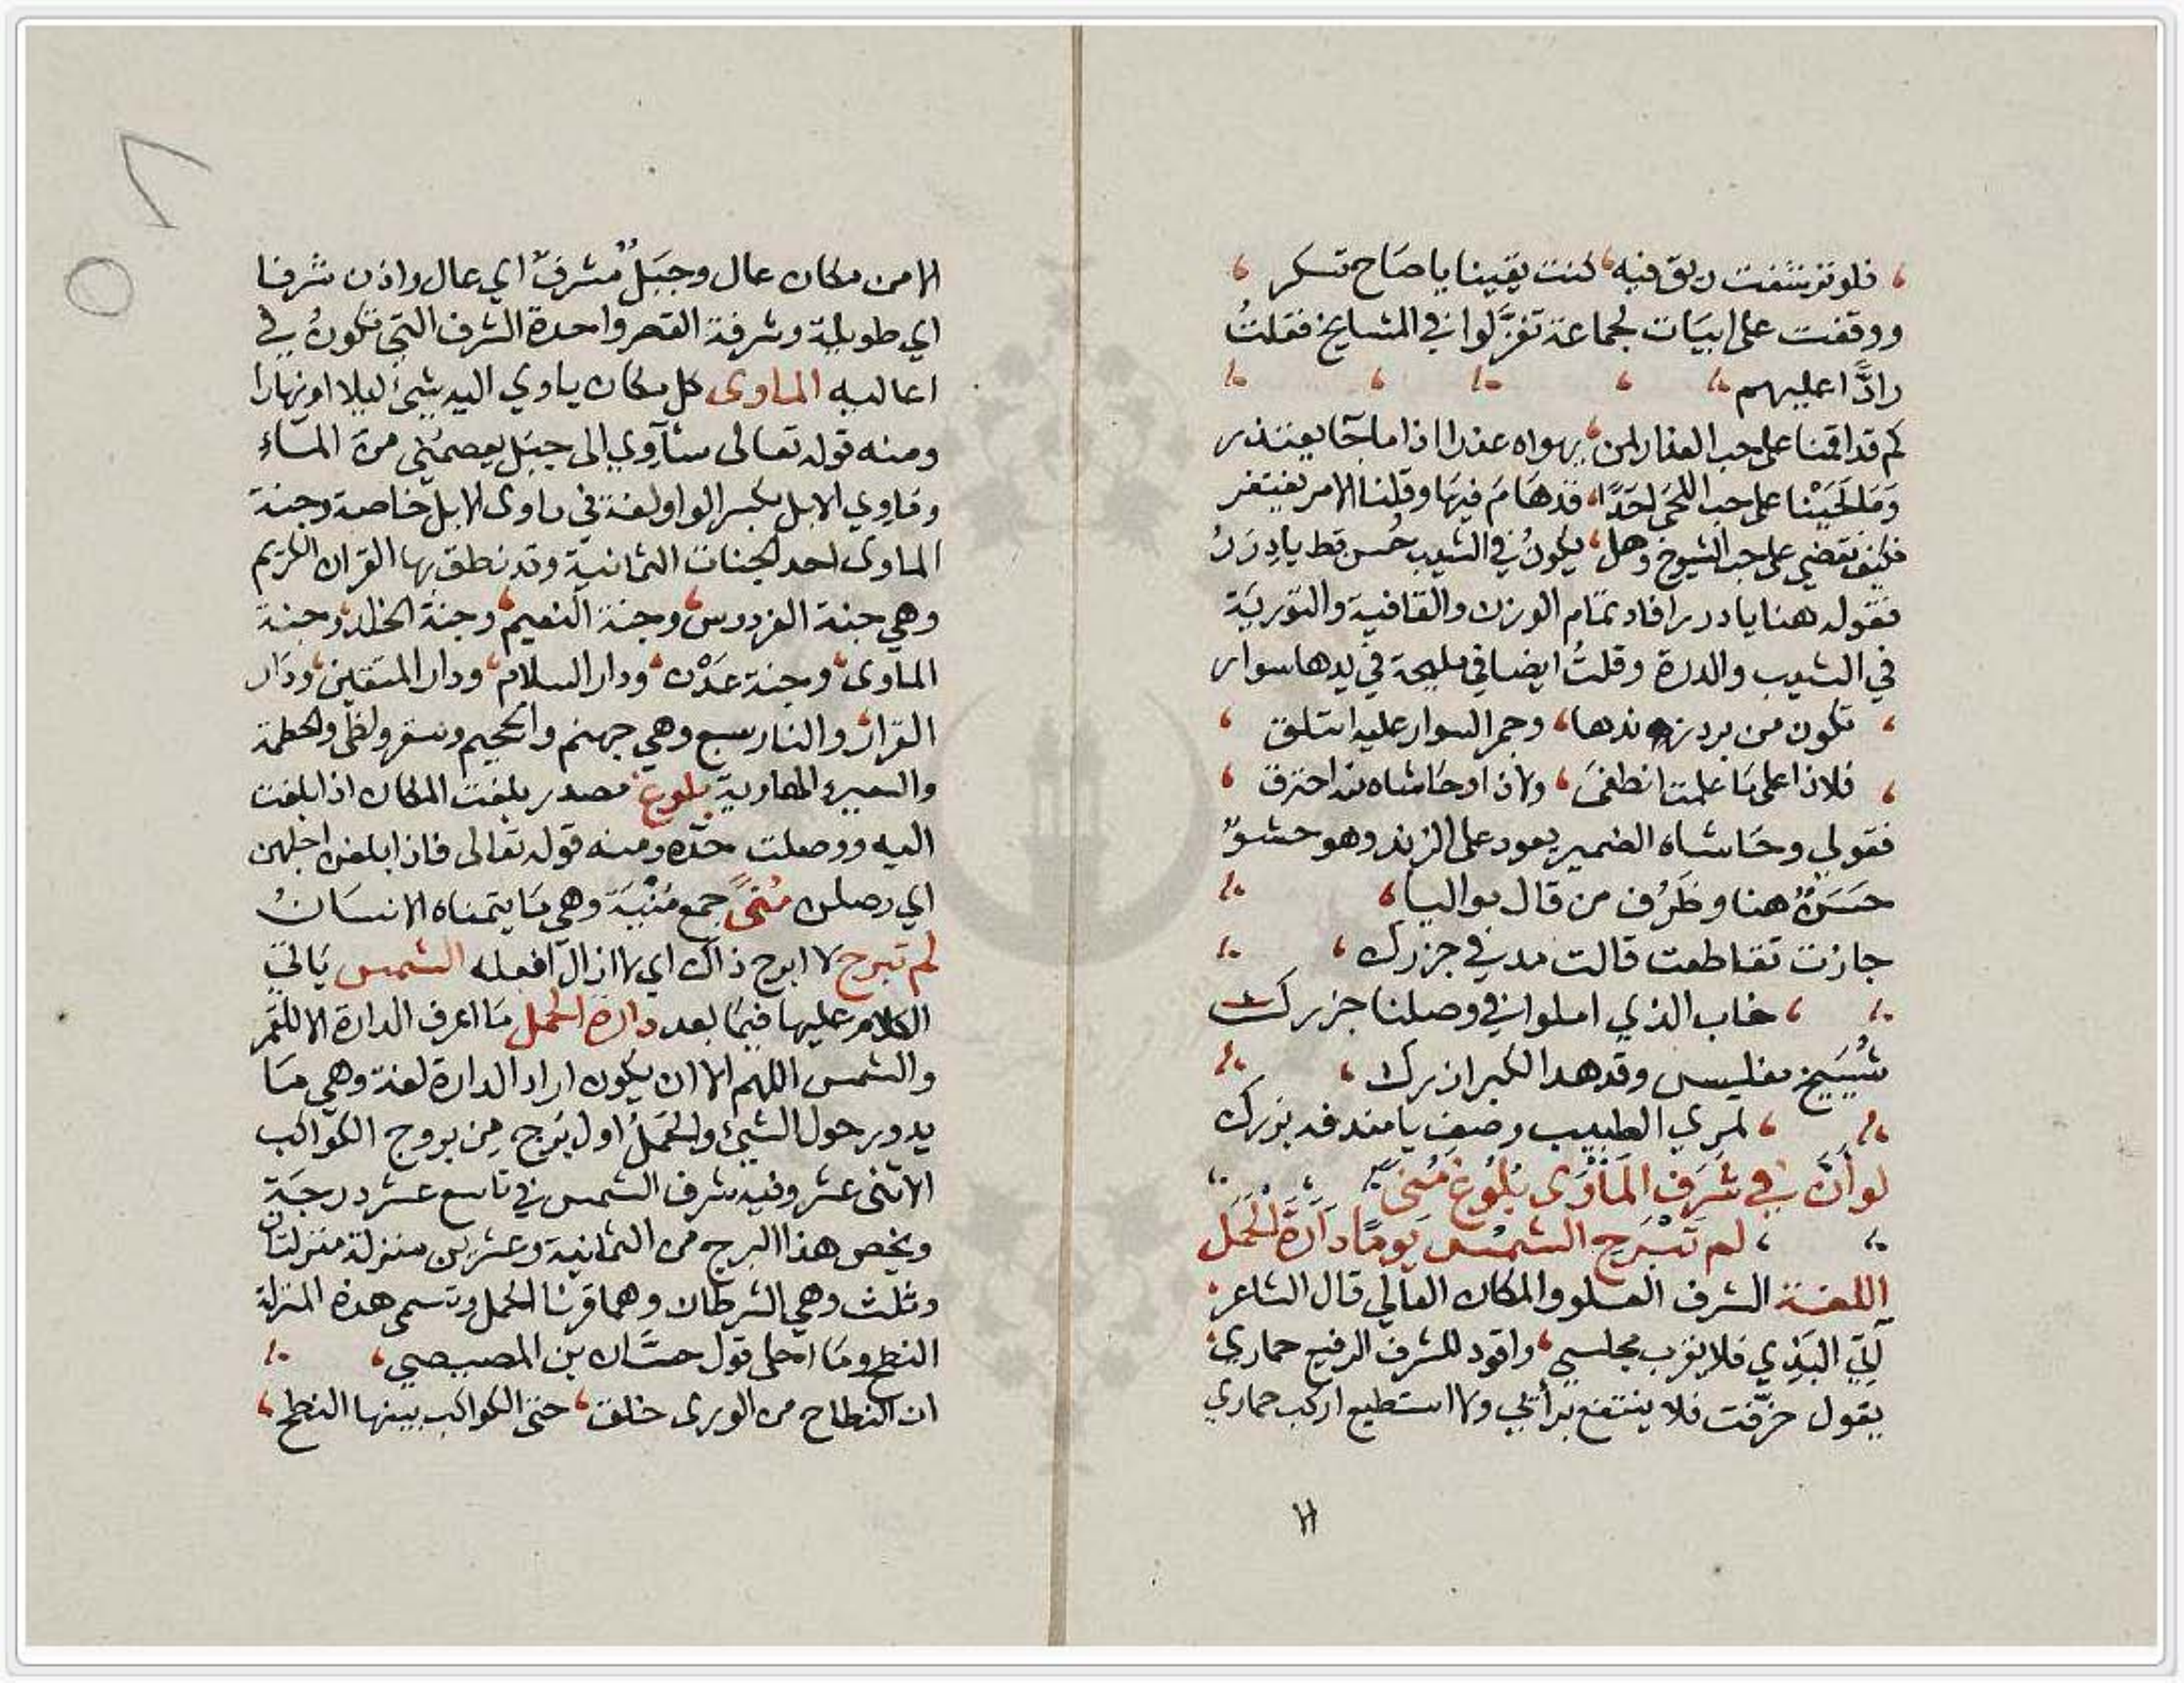 فلو ترشفت ريق فيه، كنت يقينا يا صاح تسكر
ووقفت على ابيات لجماعة تغزلوا في المشايخ فقلت
رادًّا عليهم
كم قد اقمنا على حب العذار لمن، يهواه عذرا اذا ما جآ يعتذر
وما لحينا على حب اللحى احدًا، قد هام فيها وقلنا الامر يغتفر
فكيف نقضي على حب الشيوخ وهل، يكون في الشيب حسن قط يا درر
فقوله هنا يا درر افاد تمام الوزن والقافية والتورية
في الشيب والدرة وقلت ايضا في مليحة في يدها سوار
تكون من برد زندها، وجمر السوار عليه ائتلق
فلاذا على ما علمت انطفى، ولاذا وحاشاه قد احترق
فقولي وحاشاه الضمير يعود على الزند وهو حشو
حسن هنا وظرف من قال مواليا،
جازت تقاطعت قالت مد في جزرك،
خاب الذي املوا في وصلنا جزرك
شييخ مفليس وقد هد الكبر ازرك،
لمري الطبيب وصف يا مند فه بزرك
لو أنّ في شرف المأوى بلوغ منى
لم تبرح الشمس يومًا دارة الحمل
اللغة الشرف العلو والمكان العالي قال الشاعر
آتي الندي فلا يقرب مجلسي، واقود للشرف الرفيع حماري
يقول خرفت فلا ينتفع برأيي ولا استطيع اركب حماري
الا من مكان عال وجبل مشرف اي عال واذن شرفا
اي طويلة وشرفة القصر واحدة الشرف التي تكون في
اعاليه الماوى كل مكان ياوي اليه شيئ ليلا او نهارا
ومنه قوله تعالى سآوي الى جبل يعصمني من الماء
وماوي الابل بكسر الواو لغة في ماوى الابل خاصة وجنة
الماوى احد الجنات الثمانية وقد نطق بها القران الكريم
وهي جنة الفردوس، وجنة النعيم، وجنة الخلد، وجنة
الماوى، وجنة عدن، ودار السلام، ودار المتقين، ودار
القرار، والنار سبع وهي جهنم والجحيم وسقر ولظى والحطمة
والسعير والهاوية بلوغ مصدر بلغت المكان اذا بلغت
اليه ووصلت حده ومنه قوله تعالى فاذا بلغن اجلهن
اي وصلن منى جمع منية وهي ما يتمناه الانسان
لم تبرح لا ابرح ذاك اي لا ازال افعله الشمس ياتي
الكلام عليها فيما بعد دارة الحمل ما اعرف الدارة الا للقمر
والشمس اللهم الا ان يكون اراد الدارة لغة وهي ما
يدور حول الشيئ والحمل اول برج من بروج الكواكب
الاثنى عشر وفيه شرف الشمس في تاسع عشر درجة
ويخص هذا البرج من الثمانية وعشرين منزلة منزلتان
وثلث وهي الشرطان وهما قرنا الحمل وتسمى هذه المنزلة
النطح وما احلى قول حسان بن المصيصي،
ان النطاح من الورى خلق، حتى الكواكب بينها النطح،